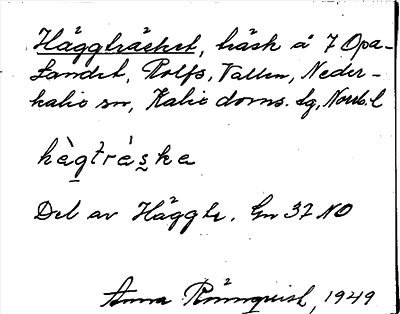 Häggträsket, träsk å 7 Opa-
Landet, Rolfs, Vallen, Neder-
kalix sn, Kalix doms. lg, Norrb. l
hàgtráska
Del av Häggtr. Gn 37 NO
Anna Rönnquist, 1949